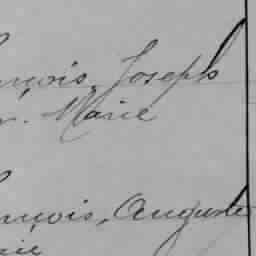 nçois, Joseph
Marie
ançois, Auguste
rie